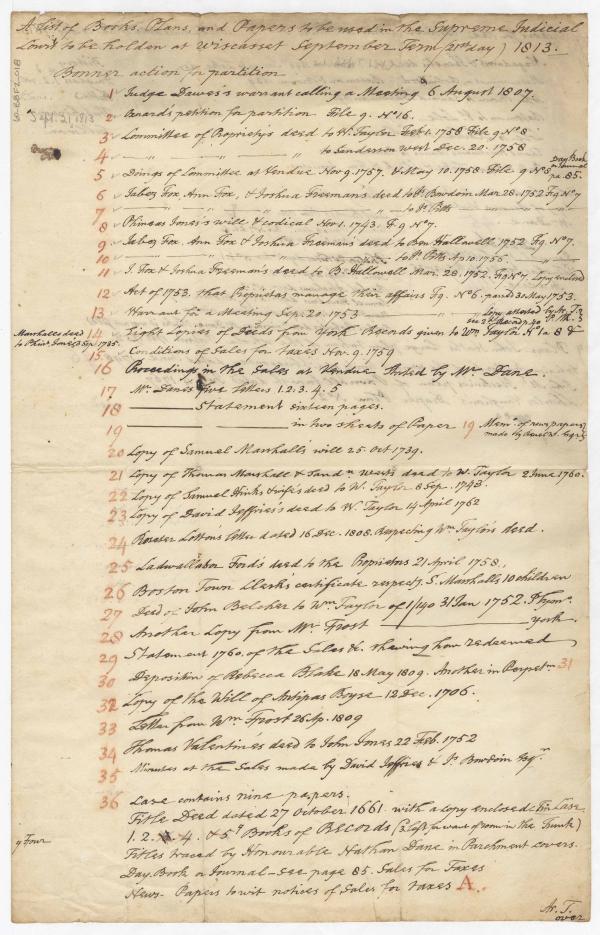 A List of Books, Plans, and Papers to be used in the Supreme Judicial
Court to be holden at Wiscasset September Term (21st day) 1813.
Bonner action for partition
1 Judge Dawes's warrant calling a Meeting 6 August 1807.
2 petition for partition File 9. No 16.
3 Committee of Propriety's deed to W. Taylor Feb. 1. 1758 File 9 No 8
4 to Sanderson West Dec. 20. 1758
5 Doings of Committee at Vendue Nov. 9. 1757. & May 10. 1758. File 9 No 5
Day Book
or Journal
pa. 85.
6 Jabez Fox, Ann Fox, & Joshua Freeman's deed to Js. Bowdoin Mar. 28. 1752 F 9 No 7
7 to Js. Pitts
8 Phineas Jones's will & codical Nov. 1. 1743. F. 9 No 7.
9 Jabez Fox, Ann Fox & Joshua Freeman's deed to Ben Hallowell 1752 F 9. No 7.
10 to Js. Pitts Ap. 10. 1756.
11 J. Fox & Joshua Freeman's deed to B. Hallowell Mar. 28. 1752. F 9. No 7. Copy enclosed
12 Act of 1753. that Proprietors manage their affairs F 9. No 6. passed 31 May 1753.
13 Warrant for a Meeting Sep. 20. 1753
Copy attested by Ar. T. in 2d Record p. 30
Marshalls deed
to Phins. Jones 3 Sep. 1735.
14 Eight Copies of Deeds from York Records given to Wm Taylor No 1 a 8 &
15 Conditions of Sales for taxes Nov. 9. 1759
16 Proceedings in the Sales at Vendue by Mr Dane.
17 Mr. Dane's five Letters 1. 2. 3. 4. 5
18 Statement sixteen pages.
19 in two sheets of Paper 19 Mem. of news papers
made by
20 Copy of Samuel Marshall's will 25 Oct 1739.
21 Copy of Thomas Marshall & Sandn West's deed to W. Taylor 2 June 1760.
22 Copy of Samuel Hinks & wife's deed to W. Taylor 8 Sep. 1743.
23 Copy of David Jeffries's deed to W. Taylor 14 April 1762
24 Rosseter Cotton's letter dated 16 Dec. 1808. Respecting Wm Taylor's deed.
25 Cadwallador Ford's deed to the Proprietors 21 April 1758.
26 Boston Town Clerk's certificate respectg. S. Marshall's 10 children
27 Deed of John Belcher to Wm Taylor of 1/140 31 Jan 1752.
28 Another Copy from Mr. Frost York.
29 Statement 1760. of the Sales &c. shewing how redeemed
30 Deposition of Rebecca Blake 18 May 1809. Another in Perpetm 31
32 Copy of the Will of Antipas Boyse 12 Dec. 1706.
33 Letter from Wm Frost 26 Ap. 1809
34 Thomas Valentine's deed to John Jones 22 Feb. 1752
35 Minutes at the Sales made by David Jeffries & Js. Bowdoin Esqr.
36 Case contains nine papers.
Title Deed dated 27 October 1661. with a copy enclosed Tin Case
1. 2. 4. & 5th Books of Records (3 left for want of room in the Trunk)
Titles traced by Honourable Nathan Dane in Parchment covers.
Day Book or Journal - see page 85. Sales for Taxes
News-Papers to wit notices of Sales for taxes A.
Ar. T.
over